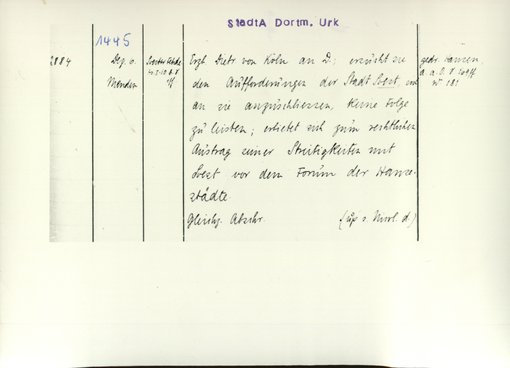 StadtA Dortm. Urk
1445
2884
Dez. 0.
Menden
Erzb. Dietr. von Köln an D., ersucht sie
den Aufforderungen der Stadt Soest, sich
an sie anzuschliessen, keine Folge
zu leisten; erbietet sich zum rechtlichen
Austrag seiner Streitigkeiten mit
Soest vor dem Forum der Hanse-
städte.
Gleichz. Abschr.
gedr. Hansen,
a. a. O. S.
nr 181